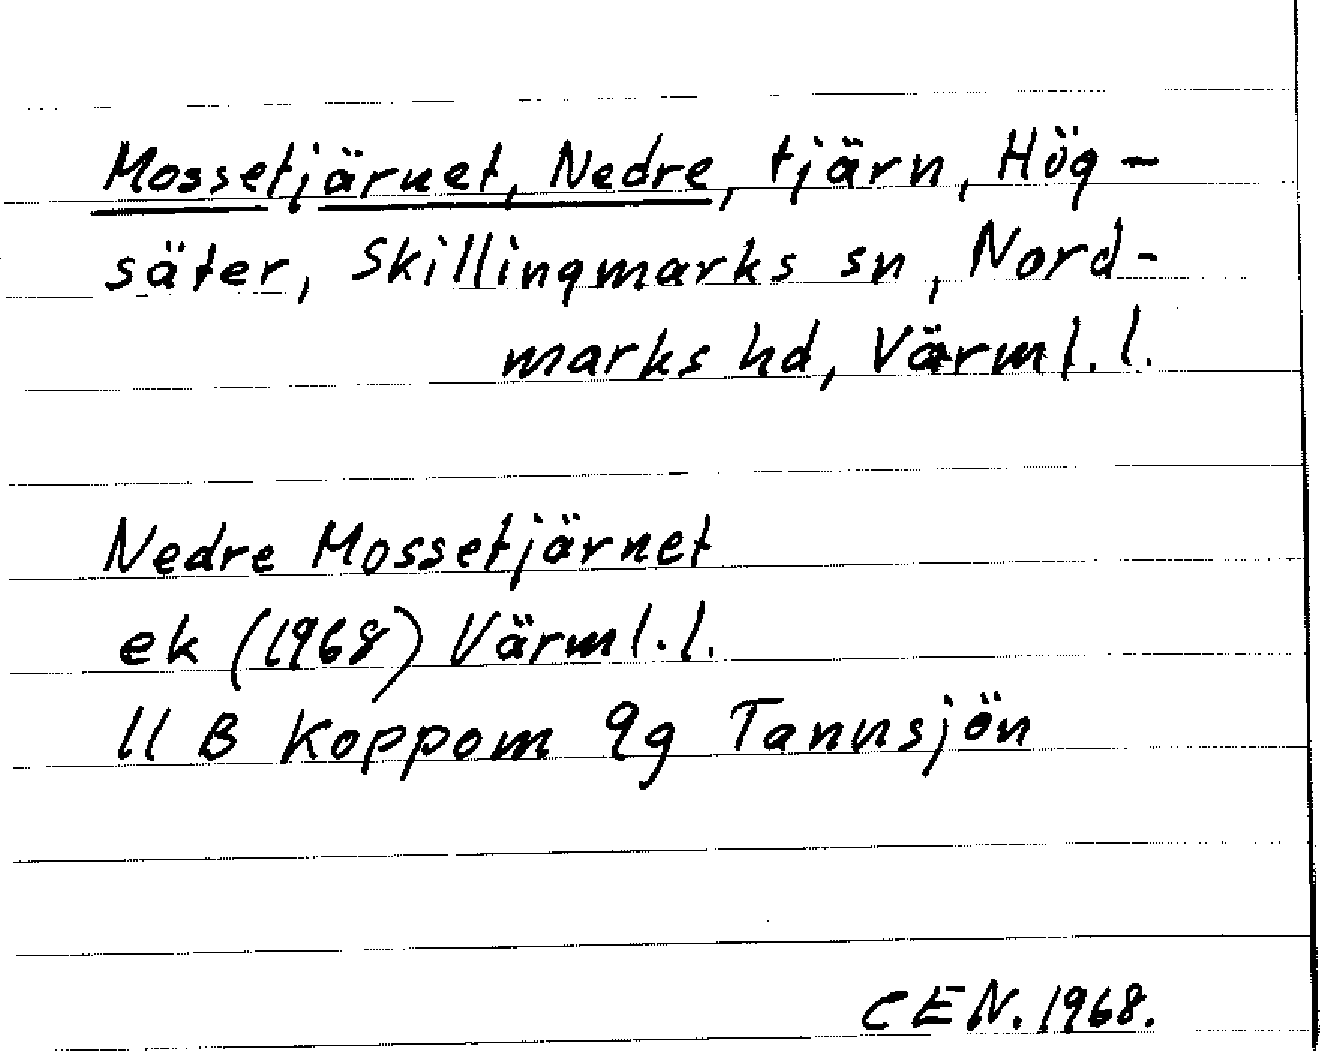 Mossetjärnet, Nedre, tjärn, Hög-
säter, Skillingmarks sn, Nord-
marks hd, Värml. l.
Nedre Mossetjärnet
ek (1968) Värml. l.
11 B Koppom 9g Tannsjön
CEN. 1968.